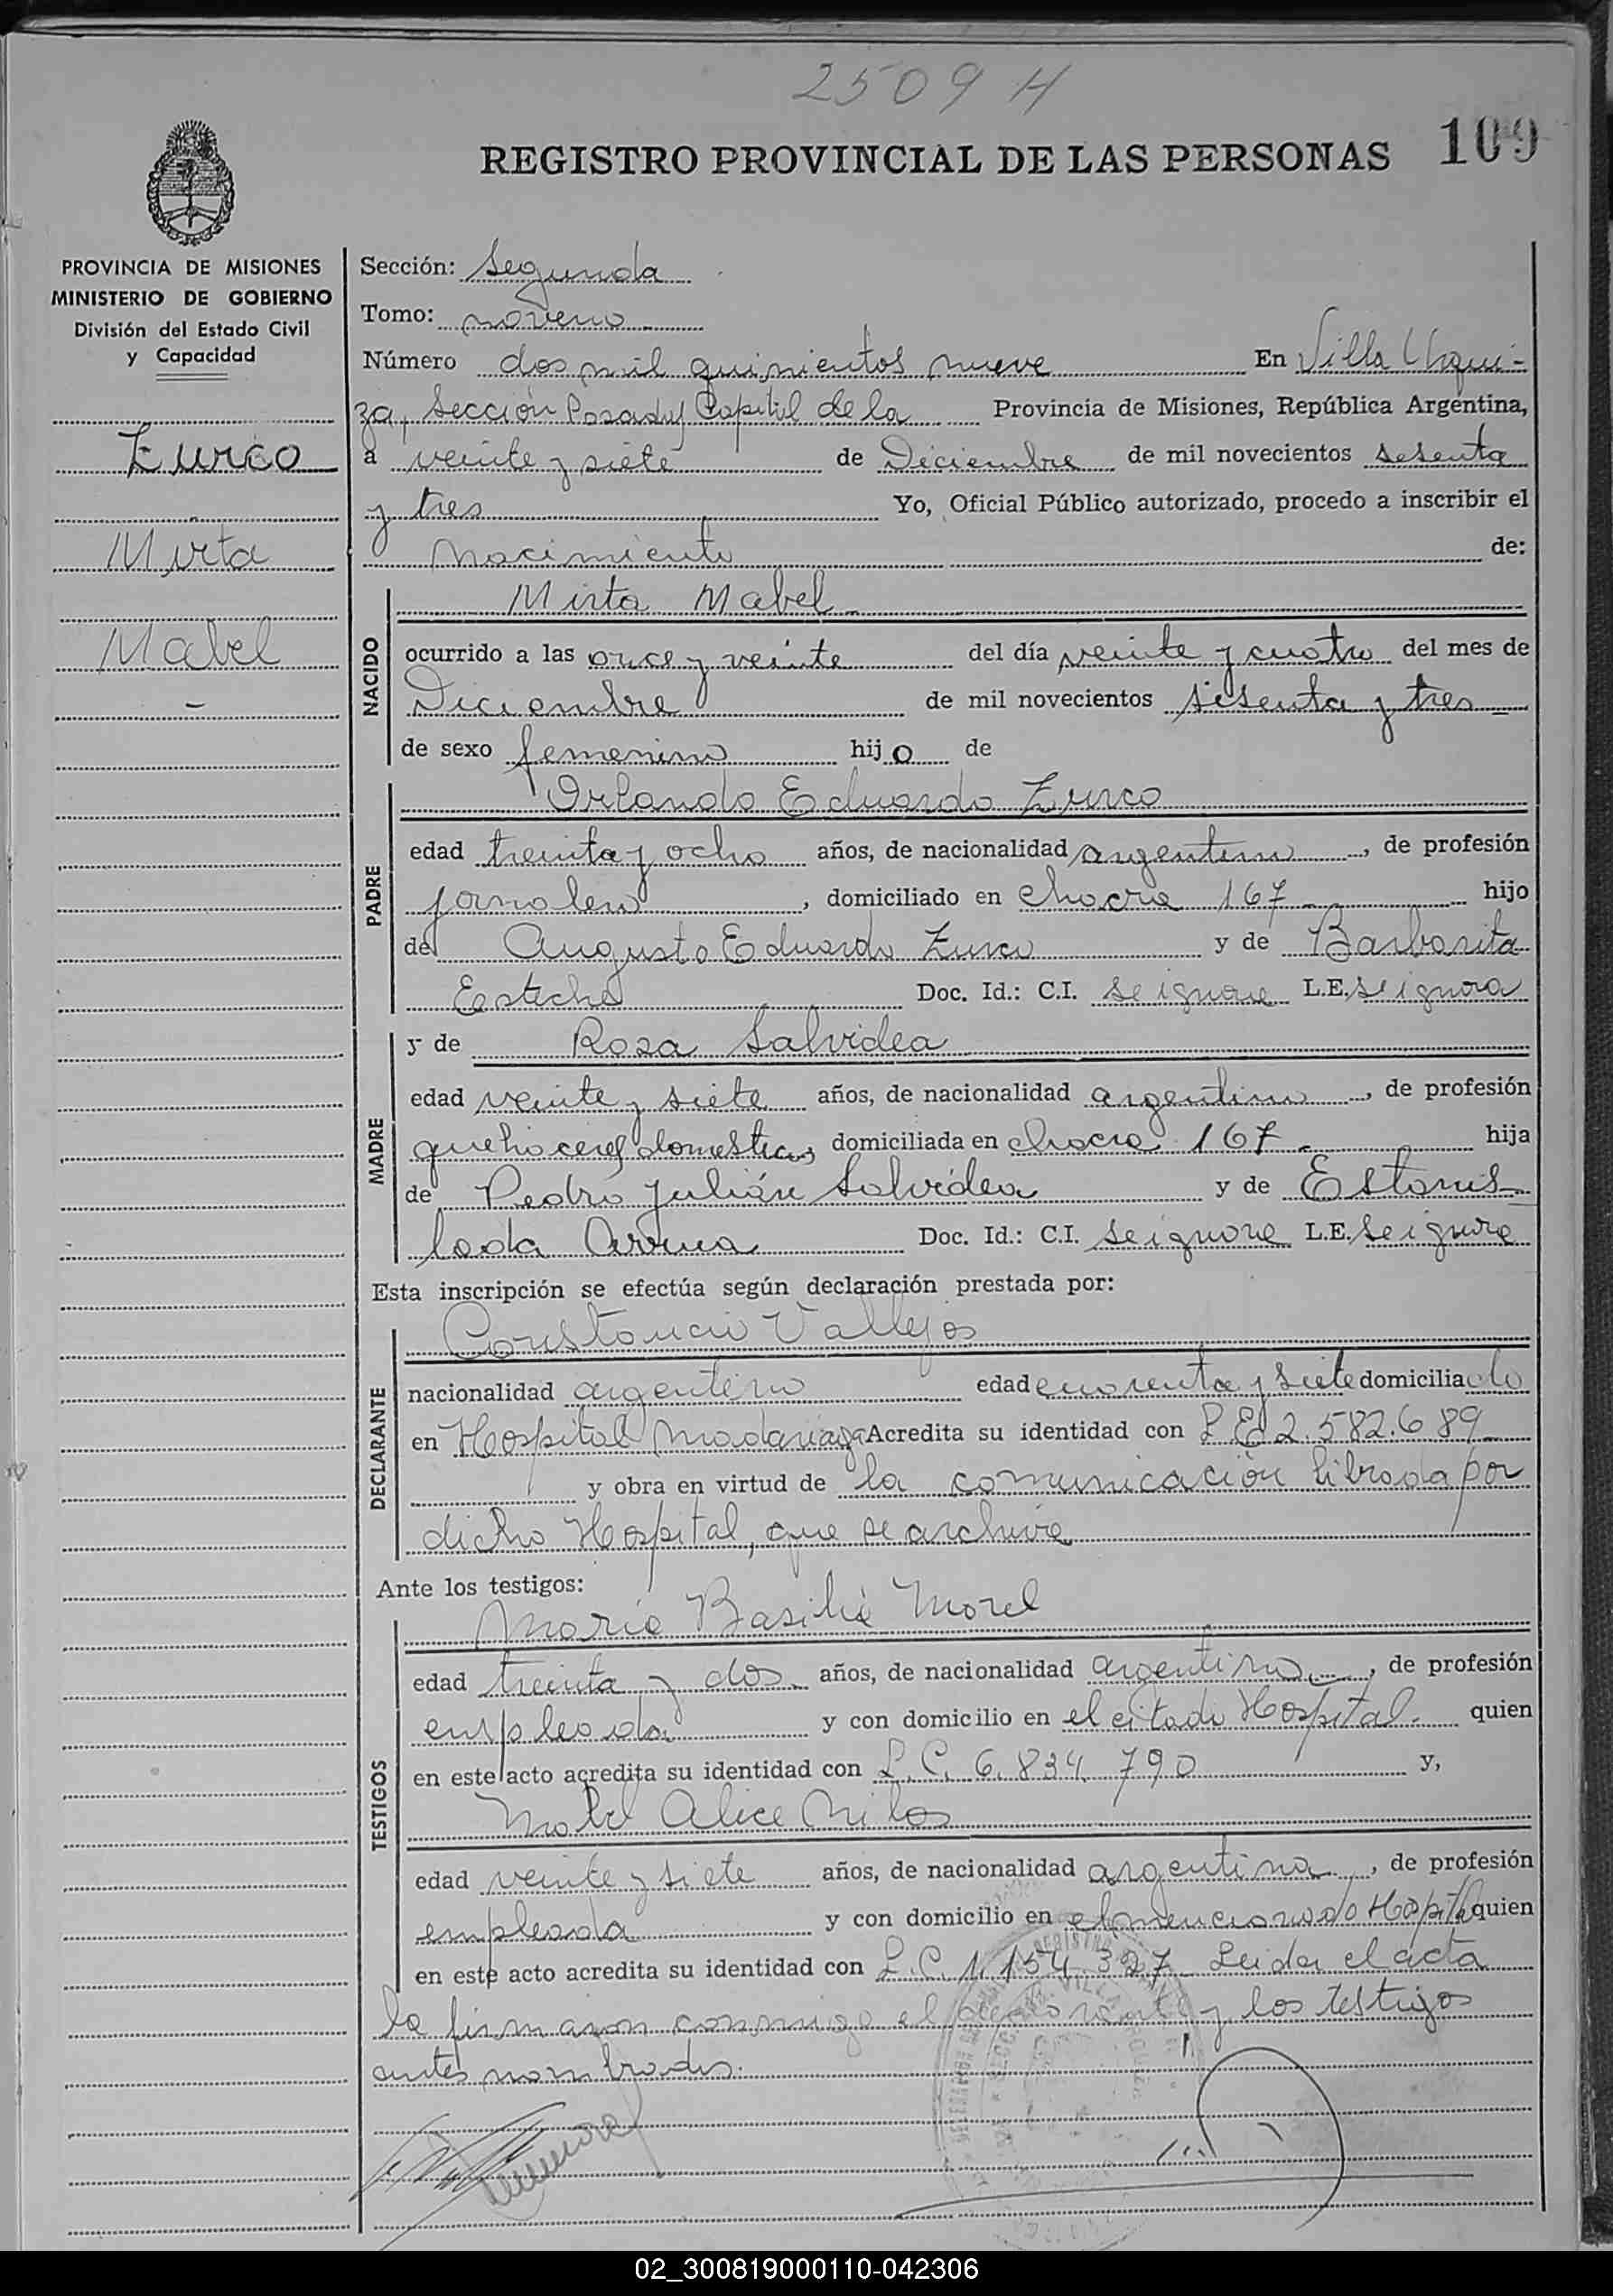 2509 H
REGISTRO PROVINCIAL DE LAS PERSONAS 109
PROVINCIA DE MISIONES
MINISTERIO DE GOBIERNO
División del Estado Civil
y Capacidad
Zurco
Mirta
Mabel
-
Sección: Segunda
Tomo: noveno
Número dos mil quinientos nueve En Villa Urqui-
za, Sección Posadas Capital de la Provincia de Misiones, República Argentina,
a veinte y siete de Diciembre de mil novecientos sesenta
y tres Yo, Oficial Público autorizado, procedo a inscribir el
nacimiento de:
NACIDO
Mirta Mabel
ocurrido a las once y veinte del día veinte y cuatro del mes de
Diciembre de mil novecientos sesenta y tres
de sexo femenino hijo de
PADRE
Orlando Eduardo Zurco
edad treinta y ocho años, de nacionalidad argentino, de profesión
jornalero, domiciliado en chacra 167 hijo
de Augusto Eduardo Zurco y de Barbarita
Esteche Doc. Id.: C.I. se ignora L.E. se ignora
MADRE
y de Rosa Salvidea
edad veinte y siete años, de nacionalidad argentina, de profesión
quehaceres domesticos domiciliada en chacra 167 hija
de Pedro Julián Salvidea y de Estanis-
lada Doc. Id.: C.I. se ignora L.E. se ignora
Esta inscripción se efectúa según declaración prestada por:
DECLARANTE
Constancio Vallejos
nacionalidad argentino edad cuarenta y siete domiciliado
en Hospital Madariaga Acredita su identidad con L E 2.582.689
y obra en virtud de la comunicación librada por
dicho Hospital, que se archiva
Ante los testigos:
TESTIGOS
María Basilia Morel
edad treinta y dos años, de nacionalidad argentina, de profesión
empleada y con domicilio en el citado Hospital. quien
en este acto acredita su identidad con L.C. 6.834.790 y,
Alice
edad veinte y siete años, de nacionalidad argentina, de profesión
empleada y con domicilio en el mencionado Hospital quien
en este acto acredita su identidad con L.C. 1.154.327 Leida el acta
la firmaron conmigo el declarante y los testigos
antes nombrados.
02_300819000110-042306